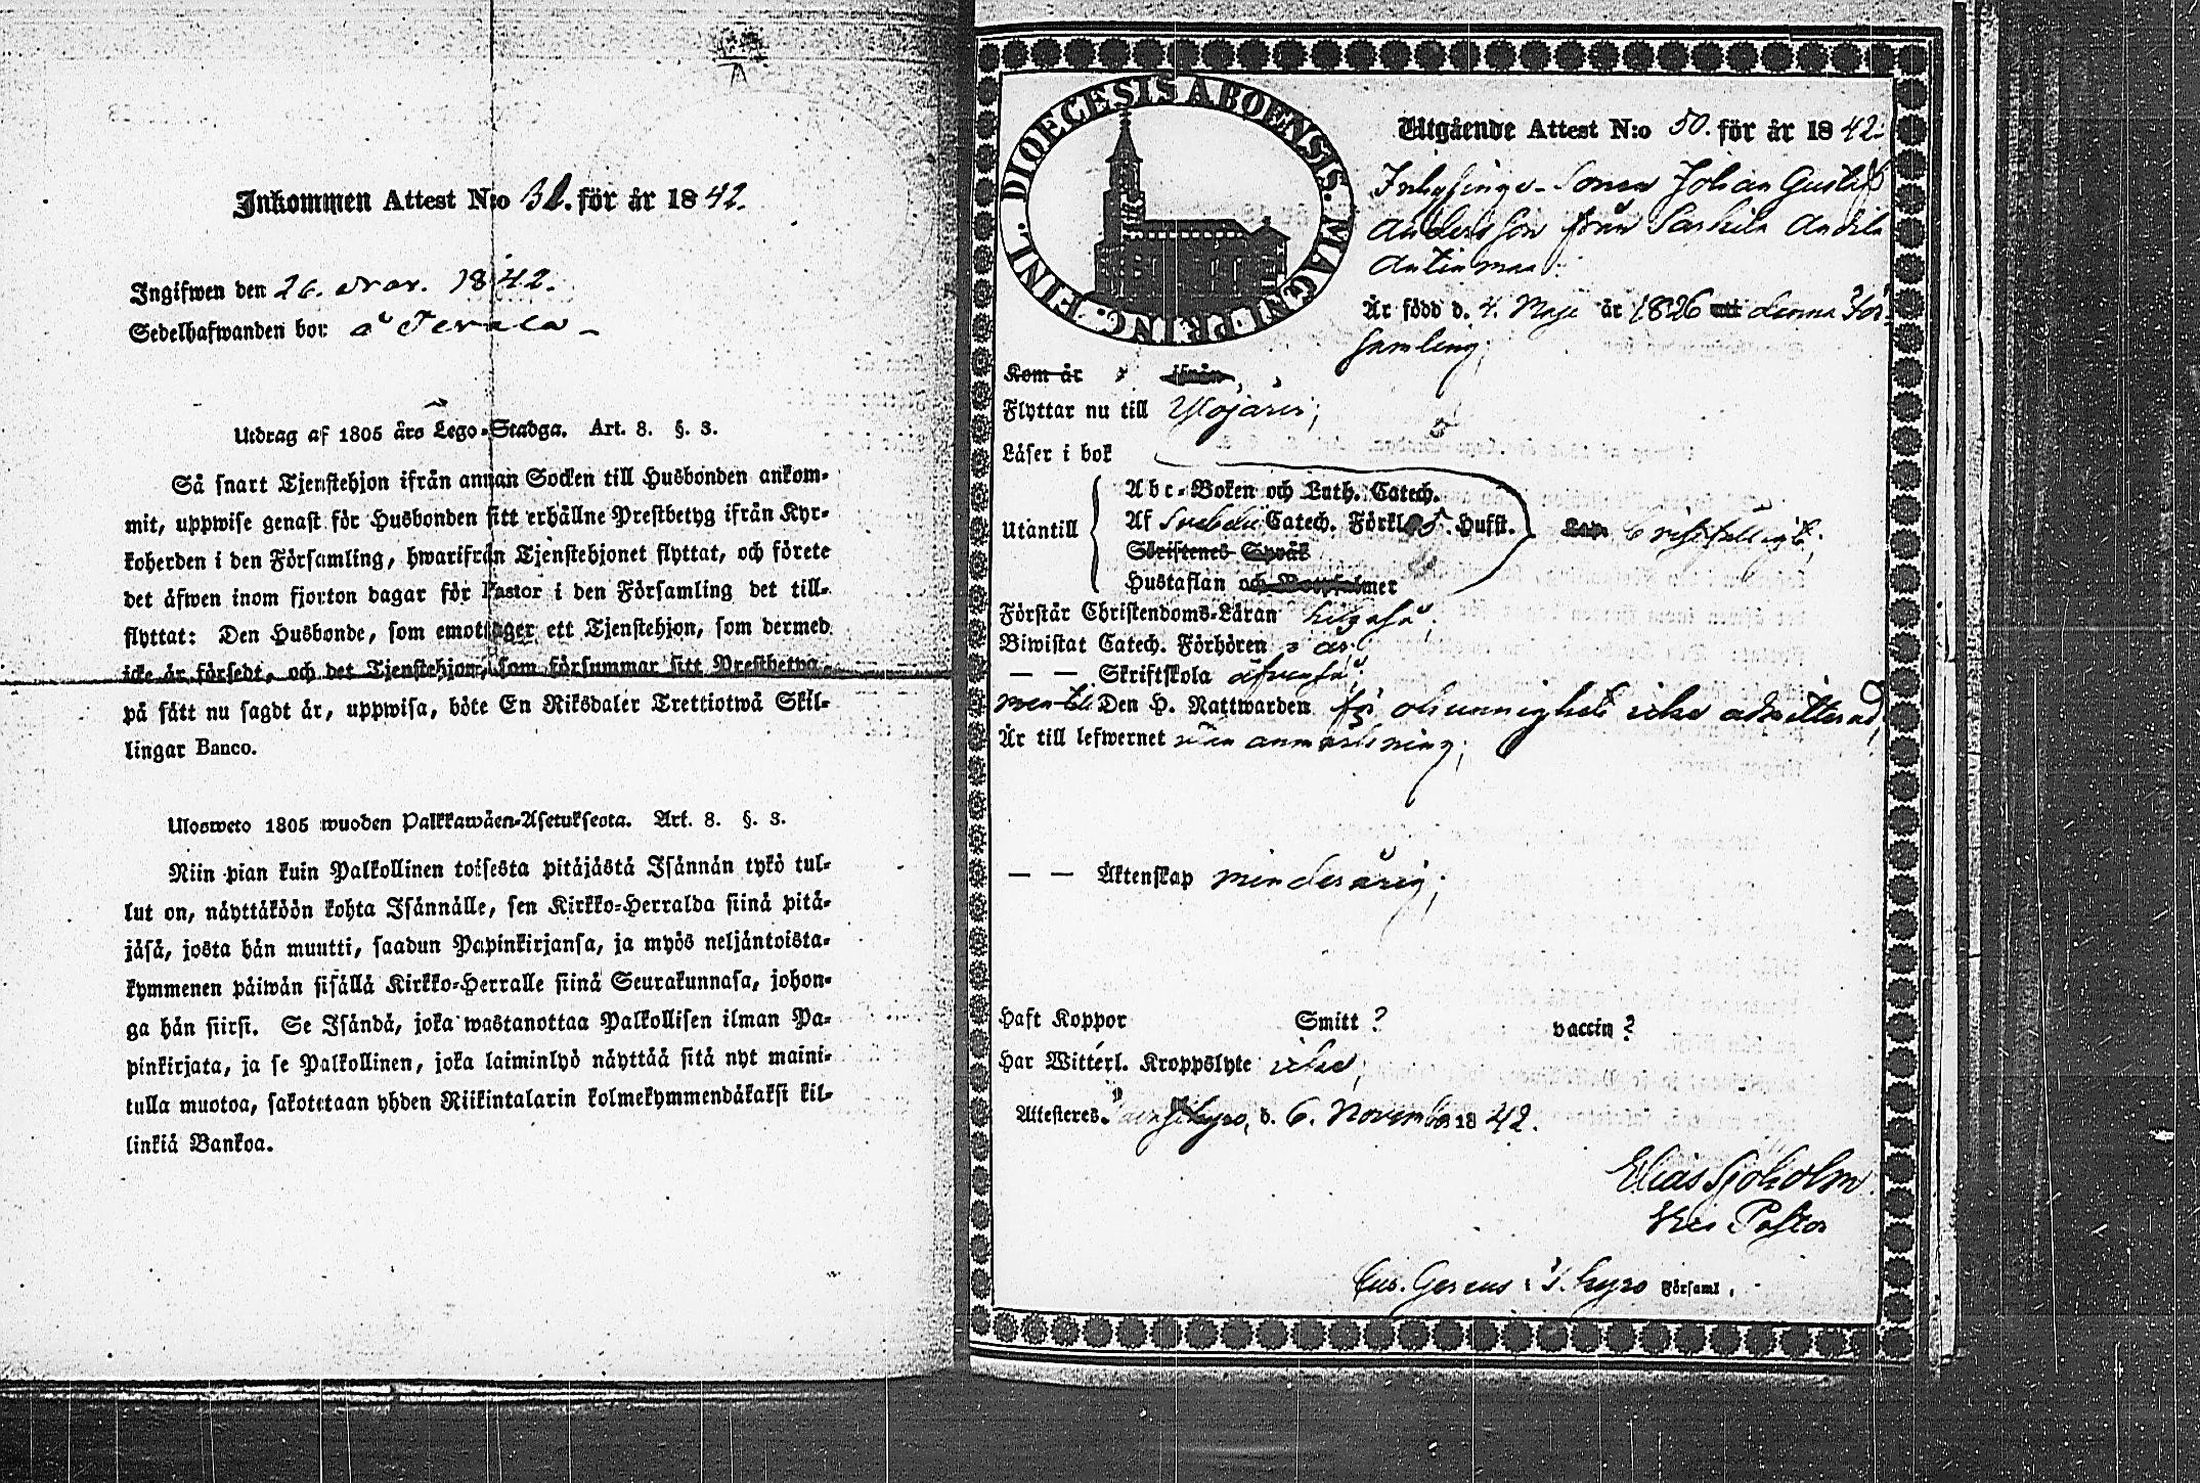 Inkommen Attest N:o 31. för år 1842.
Ingifwen den 26. Nov. 1842.
Sedelhafwanden bor å Terala
Utdrag af 1805 års Lego-Stadga. Art. 8. §. 3.
Så snart Tjenstehjon ifrån annan Socken till Husbonden ankom-
mit, uppwise genast för Husbonden sitt erhållne Prestbetyg ifrån Kyr-
koherden i den Församling, hwarifrån Tjenstehjonet flyttat, och förete
det äfwen inom fjorton dagar för Pastor i den Församling det till-
flyttat: Den Husbonde, som emottager ett Tjenstehjon, som dermed
icke är försedt, och det Tjenstehjon, som försummar sitt Prestbetyg
på sätt nu sagdt är, uppwisa, böte En Riksdaler Trettiotwå Skil-
lingar Banco.
Ulosweto 1805 wuoden Palkkawäen-Asetuksesta. Art. 8. §. 3.
Niin pian kuin Palkollinen toisesta pitäjästä Isännän tykö tul-
lut on, näyttäköön kohta Isännälle, sen Kirkko-Herralda siinä pitä-
jäsä, josta hän muutti, saadun Papinkirjansa, ja myös neljäntoista-
kymmenen päiwän sisällä Kirkko-Herralle siinä Seurakunnasa, johon-
ga hän siirsi. Se Isändä, joka wastanottaa Palkollisen ilman Pa-
pinkirjata, ja se Palkollinen, joka laiminlyö näyttää sitä nyt maini-
tulla muotoa, sakotetaan yhden Riikintalarin kolmekymmendäkaksi kil-
linkiä Bankoa.
DIOECESIS ABOENSIS. MAGN. PRINC. FINL.
Utgående Attest N:o 50. för år 1842.
Inhysinge-Sonen Johan Gustaf
Andersson från Sarkila Andila
Antinmaa
Är född d. 4. Maji år 1826 i denna För-
samling;
Kom år ifrån
Flyttar nu till Ylöjärvi;
Läser i bok
Abc-Boken och Luth. Catech.
Utantill Af Svebelii Catech. Förkl. 5. Hufst. bristfälligt;
Skriftenes Språk
Hustaflan och Botpsalmer
Förstår Christendoms-Läran likaså;
Biwistat Catech. Förhören
— — Skriftskola äfvenså;
men till Den H. Nattwarden för okunnighet icke admitterad;
Är till lefwernet utan anmärkning;
— — Äktenskap minderårig;
Haft Koppor Smitt? vaccin?
Har Witterl. Kroppslyte icke;
Attesteres. kyro, d. 6. November 1842.
Elias Sjöholm
Vice Pastor
Cur. Gerens i T. kyro Församl.